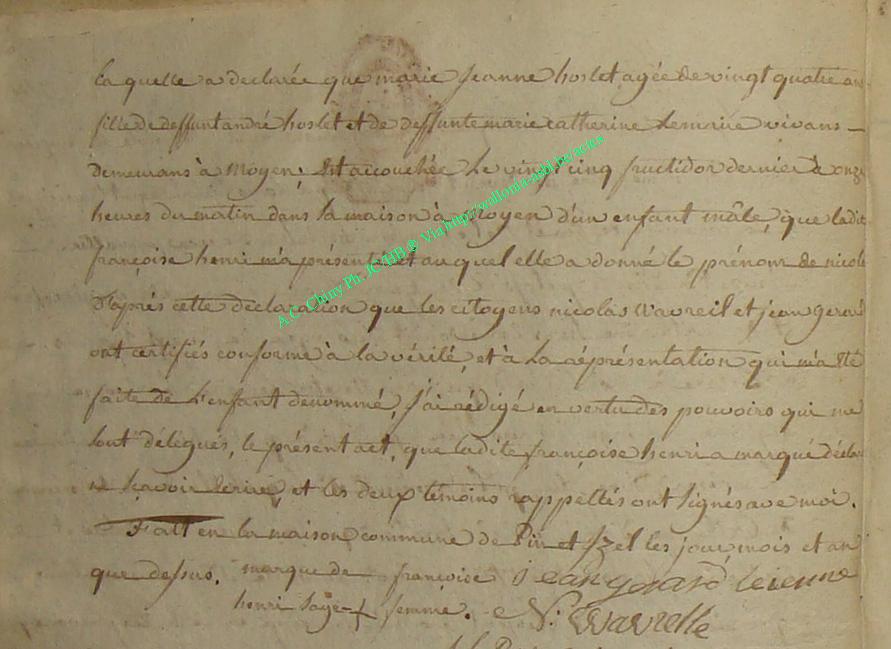 la quelle a declarée que marie jeanne hoslet agée de vingt quatre ans
fille de deffunt andré hoslet et de deffunte marie catherine Lemaire vivans
demeurans à Moyen, Est accouchée Le vingt cinq fructidor dernier à onze
heures du matin dans la maison à Moyen d'un enfant mâle, que ladite
françoise henri m'a présenté et au quel elle a donné le prénom de nicolas
D'après cette déclaration que les citoyens nicolas Wavreil et jean gerard
ont certifiés conforme à la vérité, et à La réprésentation qui m'a Eté
faite de L'enfant denommé, j'ai rédigé en vertu des pouvoirs qui me
sont délégués, le présent act, que ladite françoise henri a marqué déclaré
ne sçavoir Ecrire, et les deux témoins rappellés ont signés ave moi.
Fait en la maison commune de Pin et Izel les jour, mois et an
que dessus. marque de françoise jean gerard le jeune
henri sage + femme. N: Wavrelle
A.C. Chiny Ph. JC HB & Via http://wallonia-asbl.be/actes